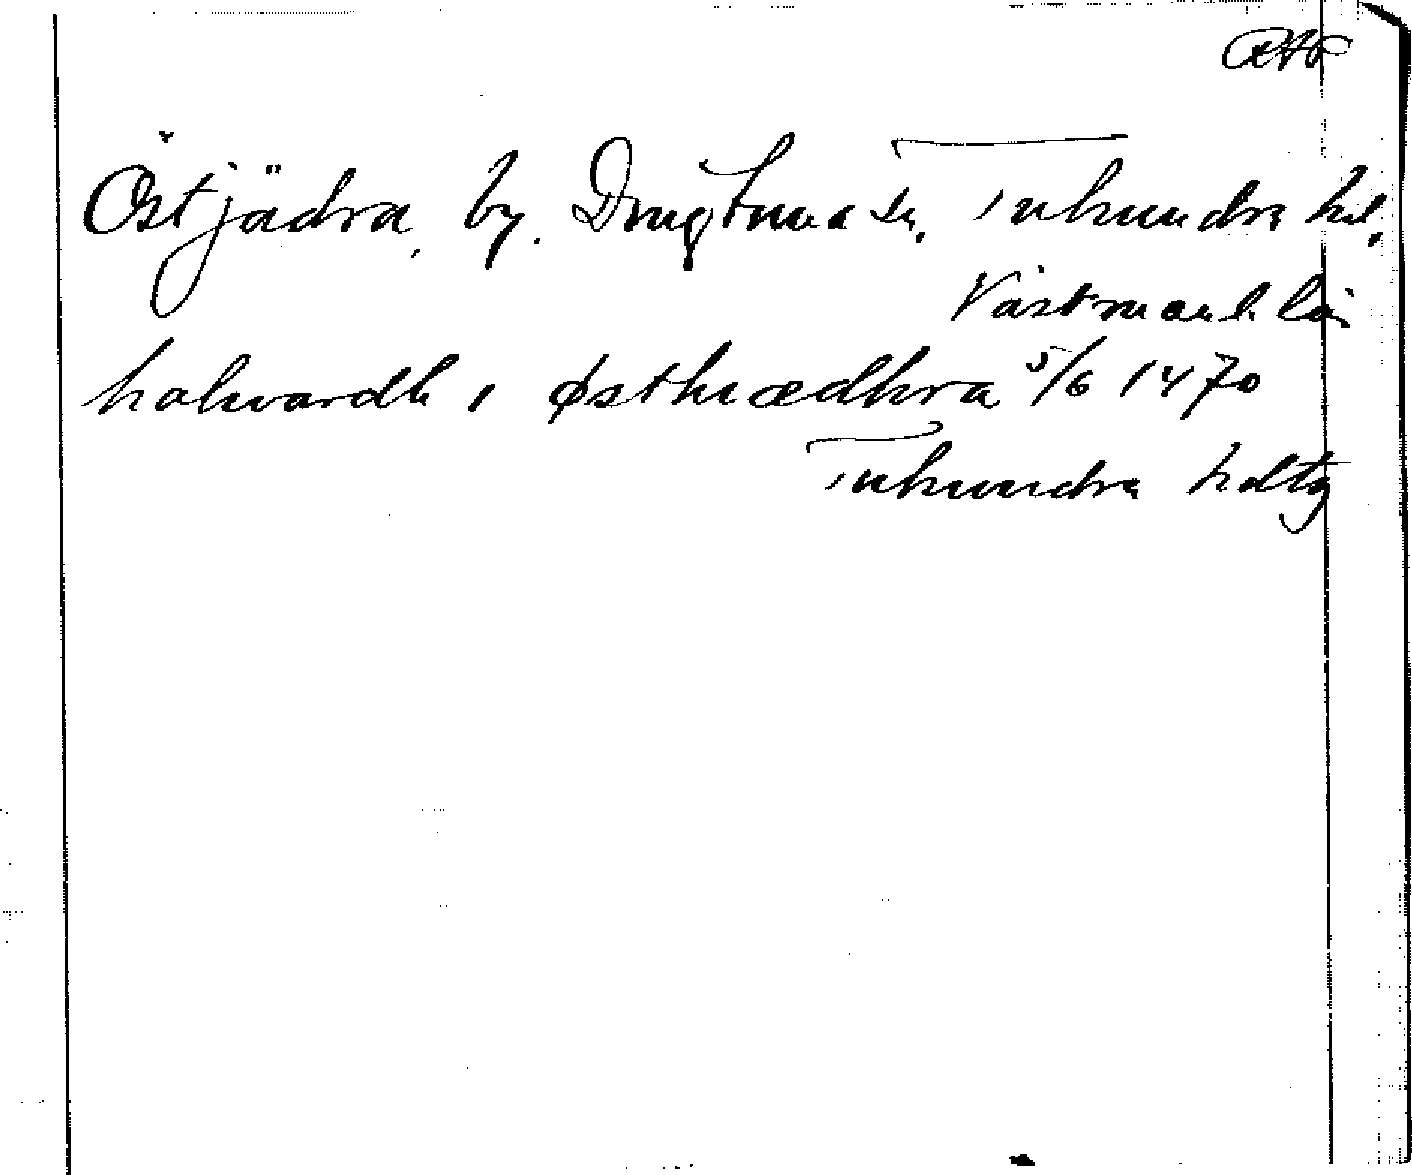 RAP
Östjädra, by. Dingtuna sn, Tuhundra hd,
Västmanl. län
halwardh i østhiædhra 5/6 1470
Tuhundra hdtg